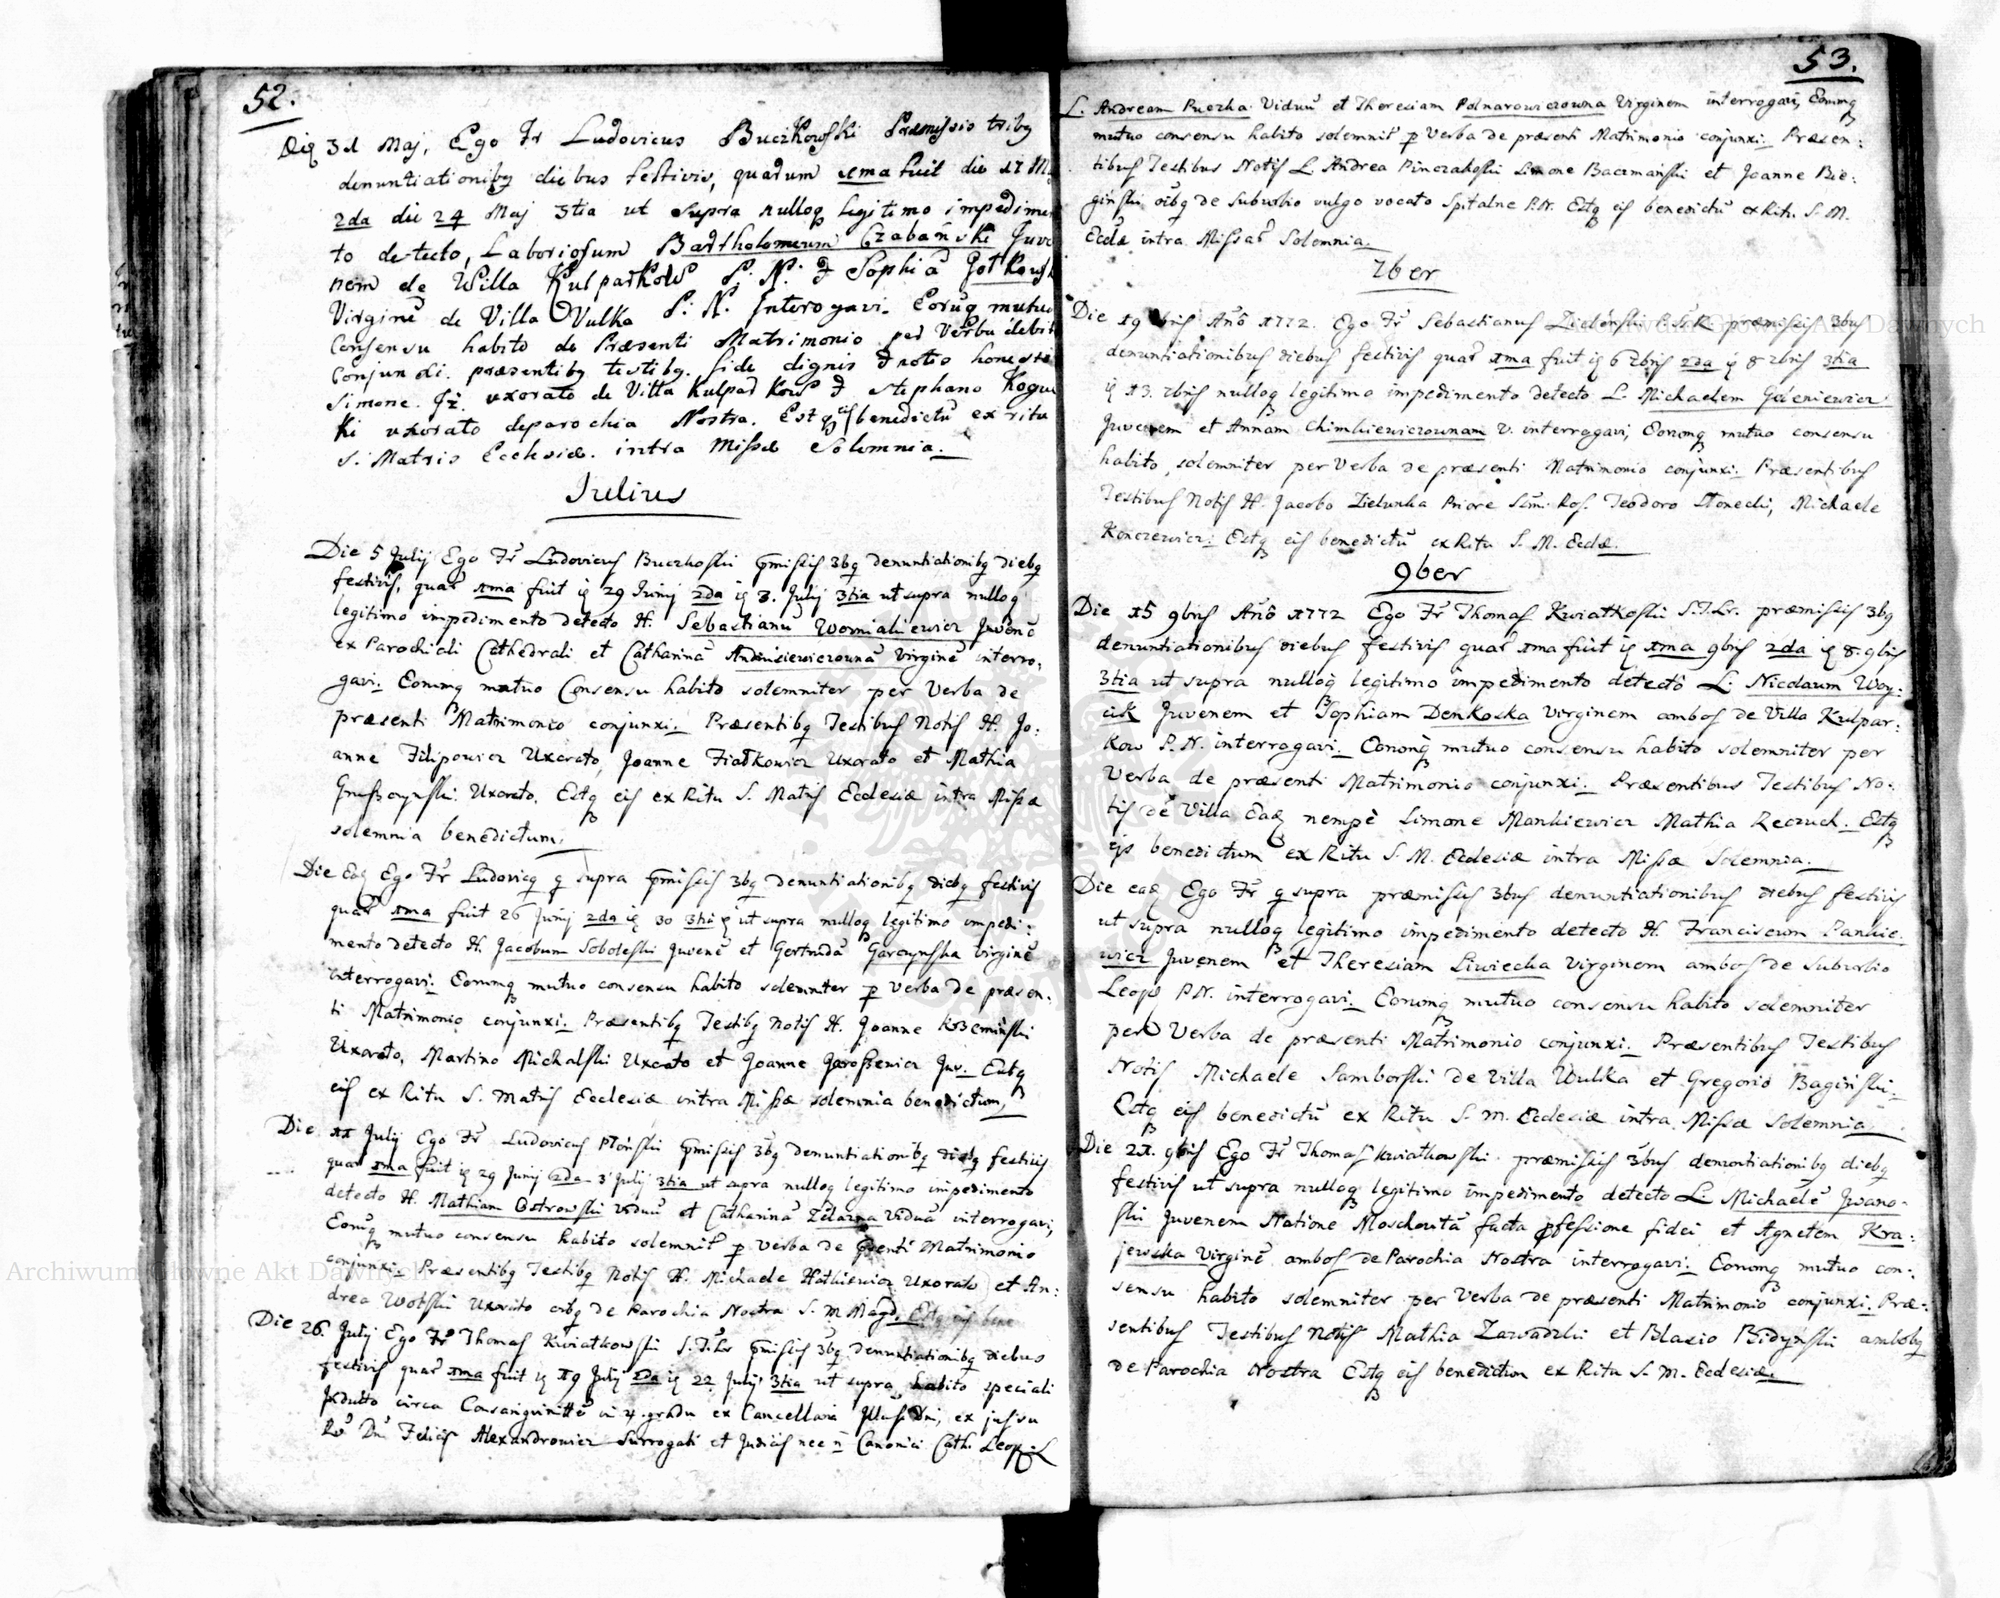 52.
Die 31 Maj, Ego Fr Ludovicus Buczkowski Præmissis tribq
denuntiationibq diebus festivis, quarum 1ma fuit die 17 M
2da die 24 Maj 3tia ut supra nulloq legitimo impedimen
to detecto, Laboriosum Bartholomeum Czabański Juve
nem de Willa Kulparkow P. N. & Sophiā
Virginē de Villa Wulka P. N. Interogavi. Eorūq mutuo
Consensu habito de Præsenti Matrimonio per Verba
Conjunxi. præsentibq testibq. fide dignis & notis
Simone uxorato de Villa Kulparkow & Stephano
ki uxorato de parochia Nostra. Estq eis benedictū ex ritu
S. Matris Ecclesiæ intra Missæ Solemnia.
Julius
Die 5 Julij Ego Fr Ludovicus Buczkoski pmissis 3bq denuntiationibq diebq
festivis, quar 1ma fuit 29 Junij 2da 3. Julij 3tia ut supra nulloq
legitimo impedimento detecto H. Sebastianū Juvenē
ex Parochiali Cathedrali et Catharinā virginē interro,
gavi. Eorumq mutuo Consensu habito solemniter per Verba de
præsenti Matrimonio conjunxi. Præsentibq Testibus Notis H. Jo:
anne Filipowicz Uxorato, Joanne Fiatkowicz Uxorato et Mathia
Uxorato. Estq eis ex Ritu S. Matris Ecclesiæ intra Missæ
solemnia benedictum.
Die Ead Ego Fr Ludovicq q supra pmissis 3bq denuntiationibq diebq festivis
quar 1ma fuit 26 Junij 2da 30 3tia ut supra nulloq legitimo impedi:
mento detecto H. Jacobum Soboleski Juvenē et Gertrudā Garczynska virginē
interrogavi. Eorumq mutuo consensu habito solemniter p verba de præsen:
ti Matrimonio conjunxi. Præsentibq Testibq Notis H. Joanne
Uxorato, Martino Michalski Uxorato et Joanne Juv. Estq
eis ex Ritu S. Matris Ecclesiæ intra Missæ solemnia benedictum,
Die 11 Julij Ego Fr Ludovicus Płoński pmissis 3bq denuntiationibq diebq festivis
quar 1ma fuit 29 Junij 2da 3 Julij 3tia ut supra nulloq legitimo impedimento
detecto H. Mathiam Ostrowski viduū et Catharinā Zelazna Viduā interrogavi,
Eorūq mutuo consensu habito solemnit p verba de psenti Matrimonio
conjunxi. Præsentibq Testibq Notis H. Michaele Uxorato et An:
drea Wolski Uxorato de Parochia Nostra S. M. Magd. Estq eis bene
Die 26. Julij Ego Fr Thomas Kwiatkowski S.T.Lr pmissis 3bq denuntiationibq diebus
festivis quar 1ma fuit 19 Julij 2da 22 Julij 3tia ut supra, habito speciali
Indulto circa Consanguinittē in 4. gradu ex Cancellaria ex jussu
Felicis Alexandrowicz Surrogati et Judicis nec n Canonici Cath. Leop. L
53.
L. Andream Puczka Viduū et Theresiam Polnarowiczowna Virginem interrogavi, Eorumq
mutuo consensu habito solemnit p Verba de præsenti Matrimonio conjunxi. Præsen:
tibus Testibus Notis L. Andrea Pinczakoski Simone Baczmański et Joanne Bie:
giński oibq de Suburbio vulgo vocato Spitalne P.N. Estq eis benedictū ex Ritu S. M.
Ecclæ intra Missar Solemnia.
7ber
Die 19 7bris Año 1772. Ego Fr Sebastianus Zieleński præmissis 3bus
denuntiationibus diebus festivis quar 1ma fuit 6 7bris 2da 8 7bris 3tia
13. 7bris nulloq legitimo impedimento detecto L. Michaelem
Juvenem et Annam Chimkiewiczownam V. interrogavi, Eorumq mutuo consensu
habito, solemniter per Verba de præsenti Matrimonio conjunxi. Præsentibus
Testibus Notis H. Jacobo Zielunka Priore Teodoro Słonecki, Michaele
Konczewicz. Estq eis benedictū ex Ritu S. M. Ecclæ.
9ber
Die 15 9bris Año 1772 Ego Fr Thomas Kwiatkoski S.T.Lr. præmissis 3bq
denuntiationibus diebus festivis quar 1ma fuit 1ma 9bris 2da 8. 9bris
3tia ut supra nulloq legitimo impedimento detecto L. Nicolaum Woy:
cik Juvenem et Sophiam Denkoska virginem ambos de Villa Kulpar:
kow P.N. interrogavi. Eorumq mutuo consensu habito solemniter per
Verba de præsenti Matrimonio conjunxi. Præsentibus Testibus No:
tis de Villa Ead nempè Simone Mankiewicz Mathia Reczuch. Estq
eis benedictum ex Ritu S. M. Ecclesiæ intra Missæ Solemnia.
Die ead Ego Fr q supra præmissis 3bus denuntiationibus diebus festivis
ut supra nulloq legitimo impedimento detecto H. Franciscum Pankie
wicz Juvenem et Theresiam Siwiecka Virginem ambos de Suburbio
Leop P.N. interrogavi. Eorumq mutuo consensu habito solemniter
per Verba de præsenti Matrimonio conjunxi. Præsentibus Testibus
Notis Michaele Samborski de Villa Wulka et Gregorio Bagiński.
Estq eis benedictū ex Ritu S. M. Ecclesiæ intra Missæ Solemnia
Die 21. 9bris Ego Fr Thomas Kwiatkowski præmissis 3bus denuntiationibq diebq
festivis ut supra nulloq legitimo impedimento detecto L. Michaelē Iwano-
ski Juvenem Natione Moschovitā facta pfessione fidei et Agnetem Kra:
jewska Virginē ambos de Parochia Nostra interrogavi. Eorumq mutuo con:
sensu habito solemniter per Verba de præsenti Matrimonio conjunxi. Præ:
sentibus Testibus Notis Mathia Zawadzki et Blasio Bidynski ambobq
de Parochia Nostra Estq eis benedictum ex Ritu S. M. Ecclesiæ.
Archiwum Główne Akt Dawnych
Archiwum Główne Akt Dawnych